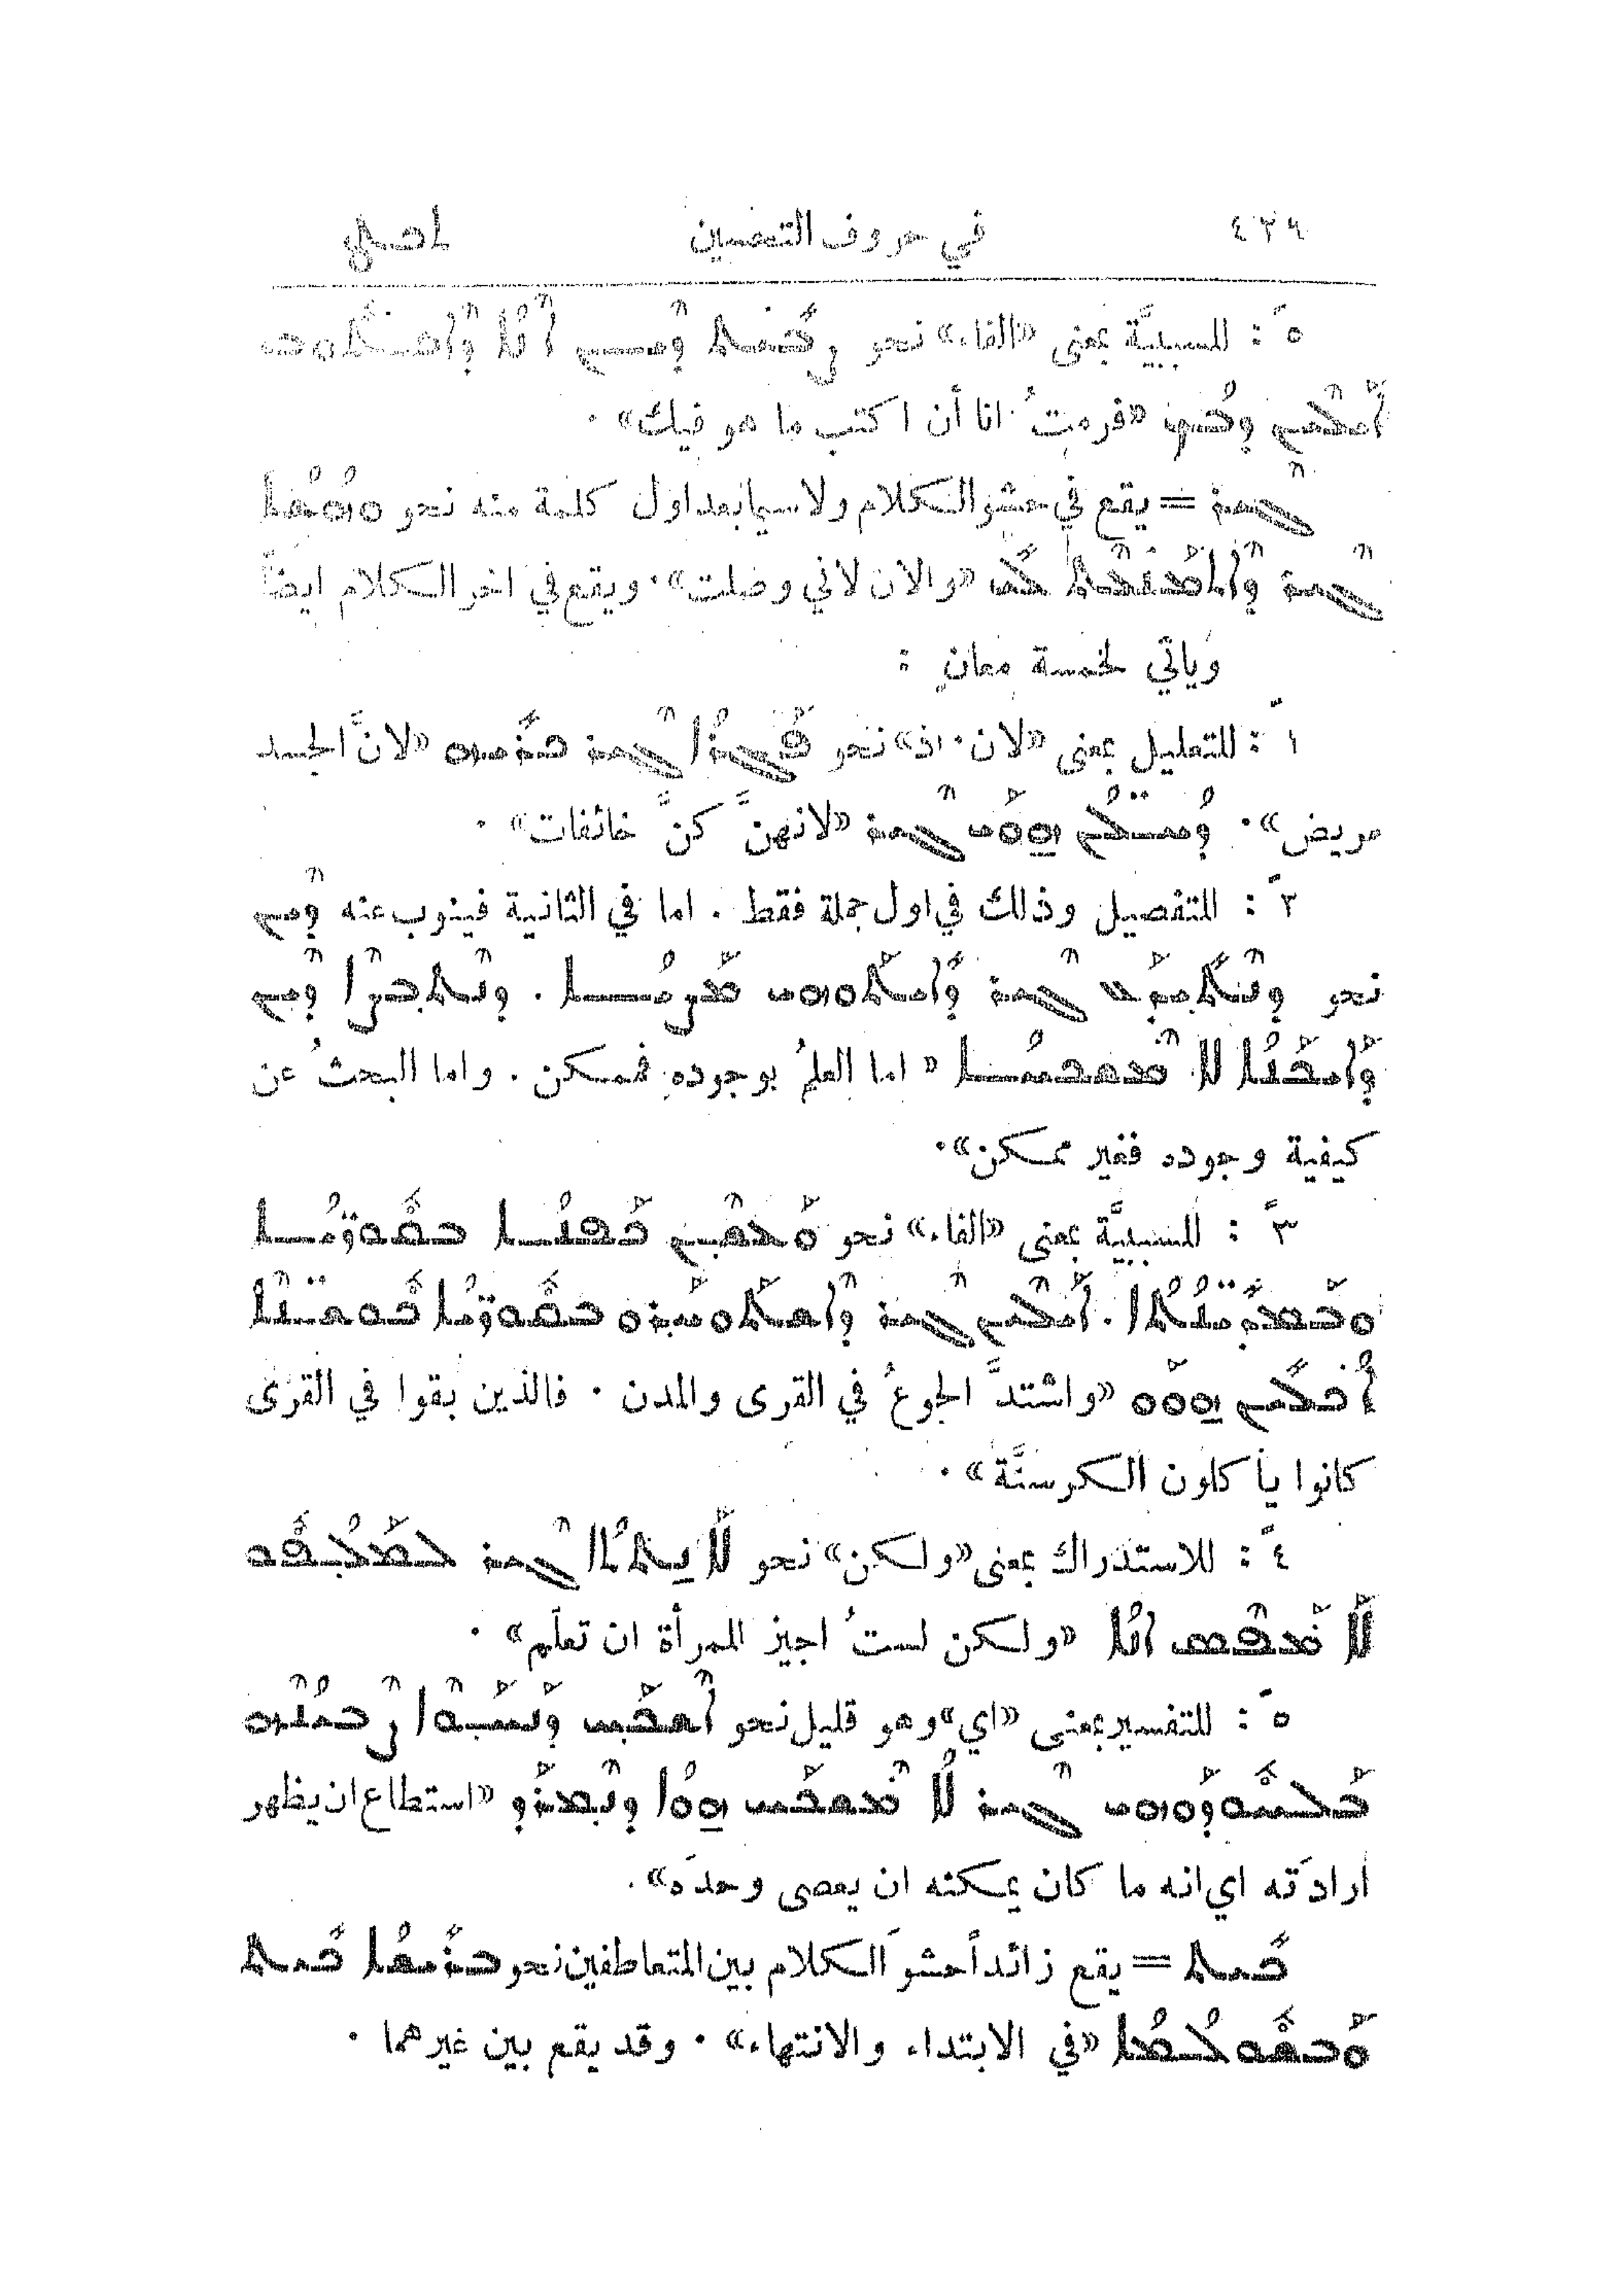 ٤٢٦ في حروف التحسين
٥ً : للسببيَّة بمعنى «الفاء» نحو ܨܒܝܬ ܕܝܢ ܐܢܐ
ܐܝܠܝܢ ܕܒܟܝ «فرمتُ انا أن اكتب ما هو فيك» ·
ܓܝܪ = يقع في حشو الكلام ولا سيما بعد اول كلمة منه نحو ܘܗܫܐ
ܓܝܪ ܕܐܬܡܢܥܬ ܠܟ «والان لاني وصلت» · ويقع في اخر الكلام ايضاً
وياتي لخمسة معانٍ :
١ً : للتعليل بمعنى «لان · اذ» نحو ܦܓܪܐ ܓܝܪ ܟܪܝܗ «لانَّ الجسد
مريض» · ܕܚܝܠܢ ܗܘܝ ܓܝܪ «لانهنَّ كنَّ خائفات» ·
٢ً : للتفصيل وذلك في اول جملة فقط . اما في الثانية فينوب عنه ܕܝܢ
نحو ܕܢܬܝܕܥ ܓܝܪ ܕܐܝܬܘܗܝ ܡܨܝܐ . ܕܢܬܒܨܐ ܕܝܢ
ܕܐܝܟܢܐ ܠܐ ܡܫܟܚܐ « اما العلمُ بوجوده فممكن . واما البحثُ عن
كيفية وجوده فغير ممكن» ·
٣ً : للسببيَّة بمعنى «الفاء» نحو ܘܥܫܢ ܟܦܢܐ ܒܩܘܪܝܐ
ܘܒܡܕܝܢܬܐ . ܐܝܠܝܢ ܓܝܪ ܕܐܫܬܘܚܪܘ ܒܩܘܪܝܐ ܟܘܫܢܐ
ܐܟܠܝܢ ܗܘܘ «واشتدَّ الجوعُ في القرى والمدن · فالذين بقوا في القرى
كانوا يأكلون الكرسنَّة» ·
٤ً : للاستدراك بمعنى «ولكن» نحو ܠܐܢܬܬܐ ܓܝܪ ܠܡܠܦܘ
ܠܐ ܡܦܣ ܐܢܐ «ولكن لستُ اجيز للمرأة ان تعلّم» ·
٥ً : للتفسير بمعنى «اي» وهو قليل نحو ܐܫܟܚ ܕܢܚܘܐ ܨܒܝܢܗ
ܒܠܚܘܕܘܗܝ ܓܝܪ ܠܐ ܡܫܟܚ ܗܘܐ ܕܢܡܪܕ «استطاع ان يظهر
ارادَته اي انه ما كان يمكنه ان يعصى وحدَه» .
ܟܝܬ = يقع زائداً حشوَ الكلام بين المتعاطفين نحو ܒܪܝܫܐ ܟܝܬ
ܘܒܫܘܠܡܐ «في الابتداء والانتهاء» · وقد يقع بين غيرهما ·